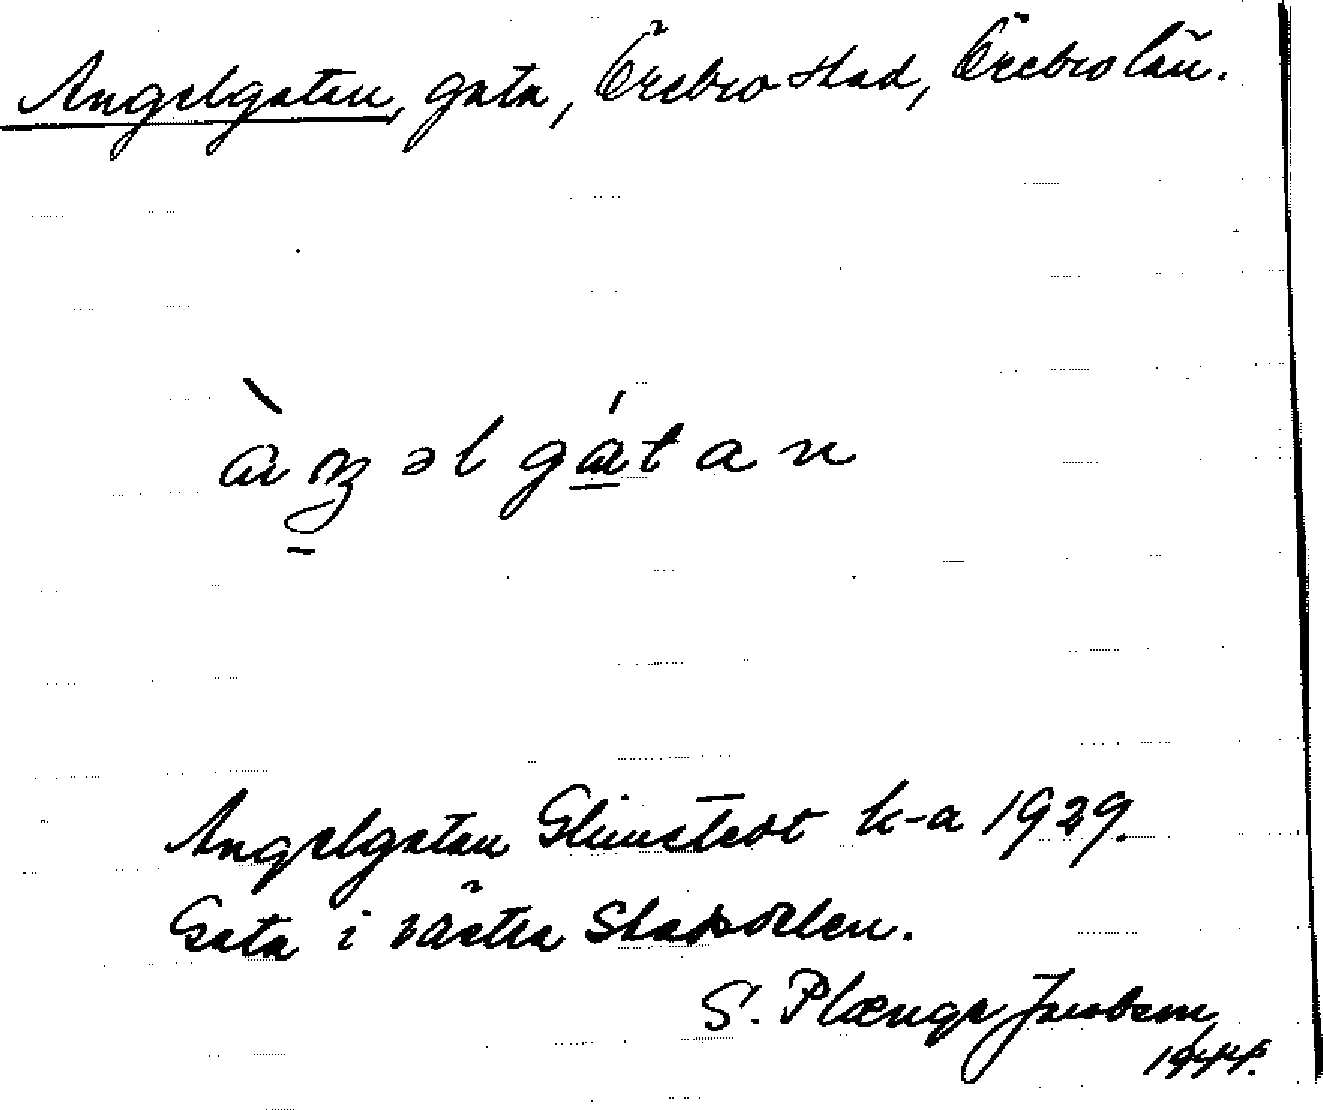 Angelgatan, gata, Örebro stad, Örebro län.
àŋəlgátan
Angelgatan Glimstedt k-a 1929.
Gata i västra Stadsdelen.
S. Plænge Jacobson
1944.